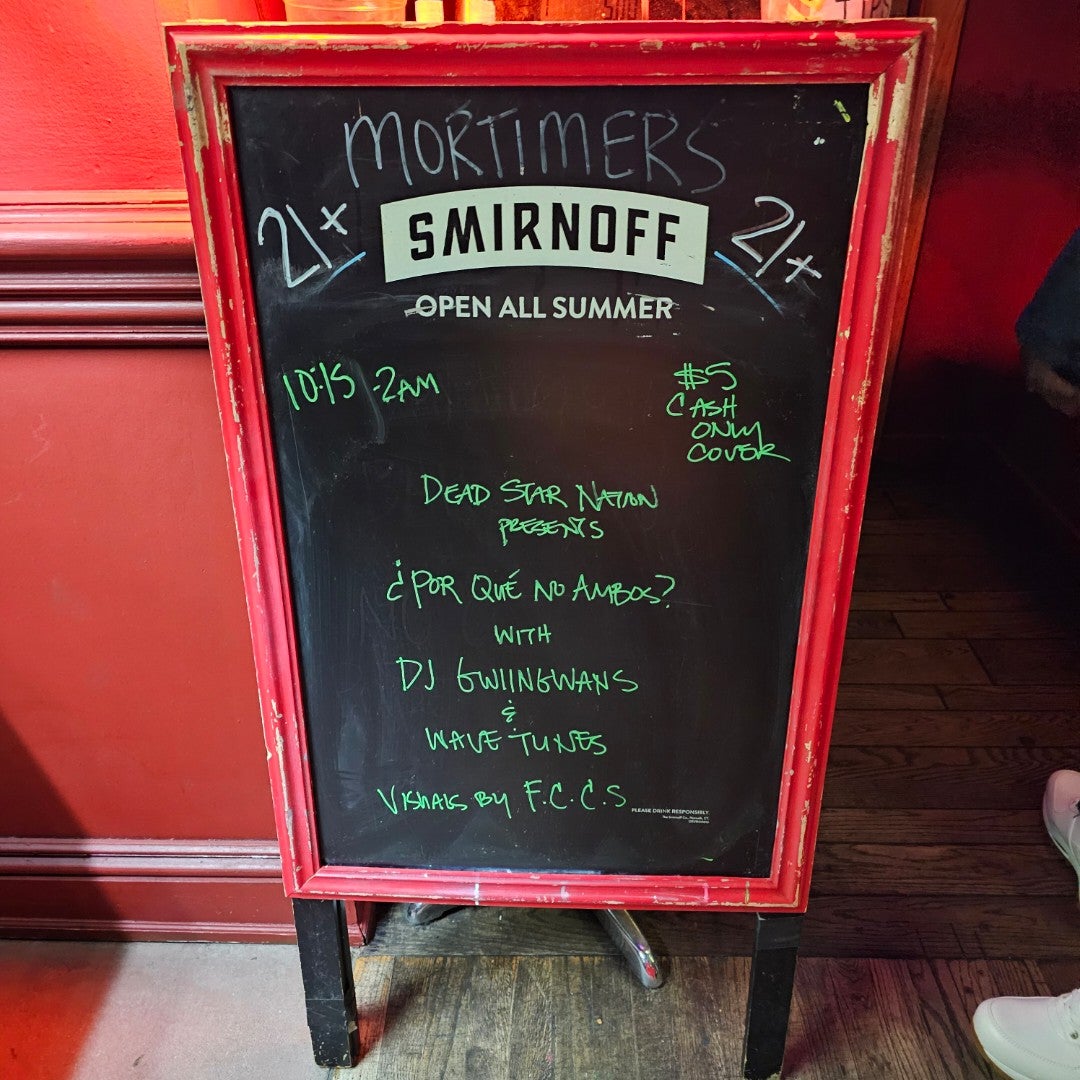 MORTIMERS
21+
SMIRNOFF
21+
OPEN ALL SUMMER
10:15 - 2AM
$5
CASH
ONLY
COVER
DEAD STAR NATION
PRESENTS
¿POR QUÉ NO AMBOS?
WITH
DJ GWIINGWANS
&
WAVE TUNES
VISUALS BY F.C.C.S
PLEASE DRINK RESPONSIBLY.